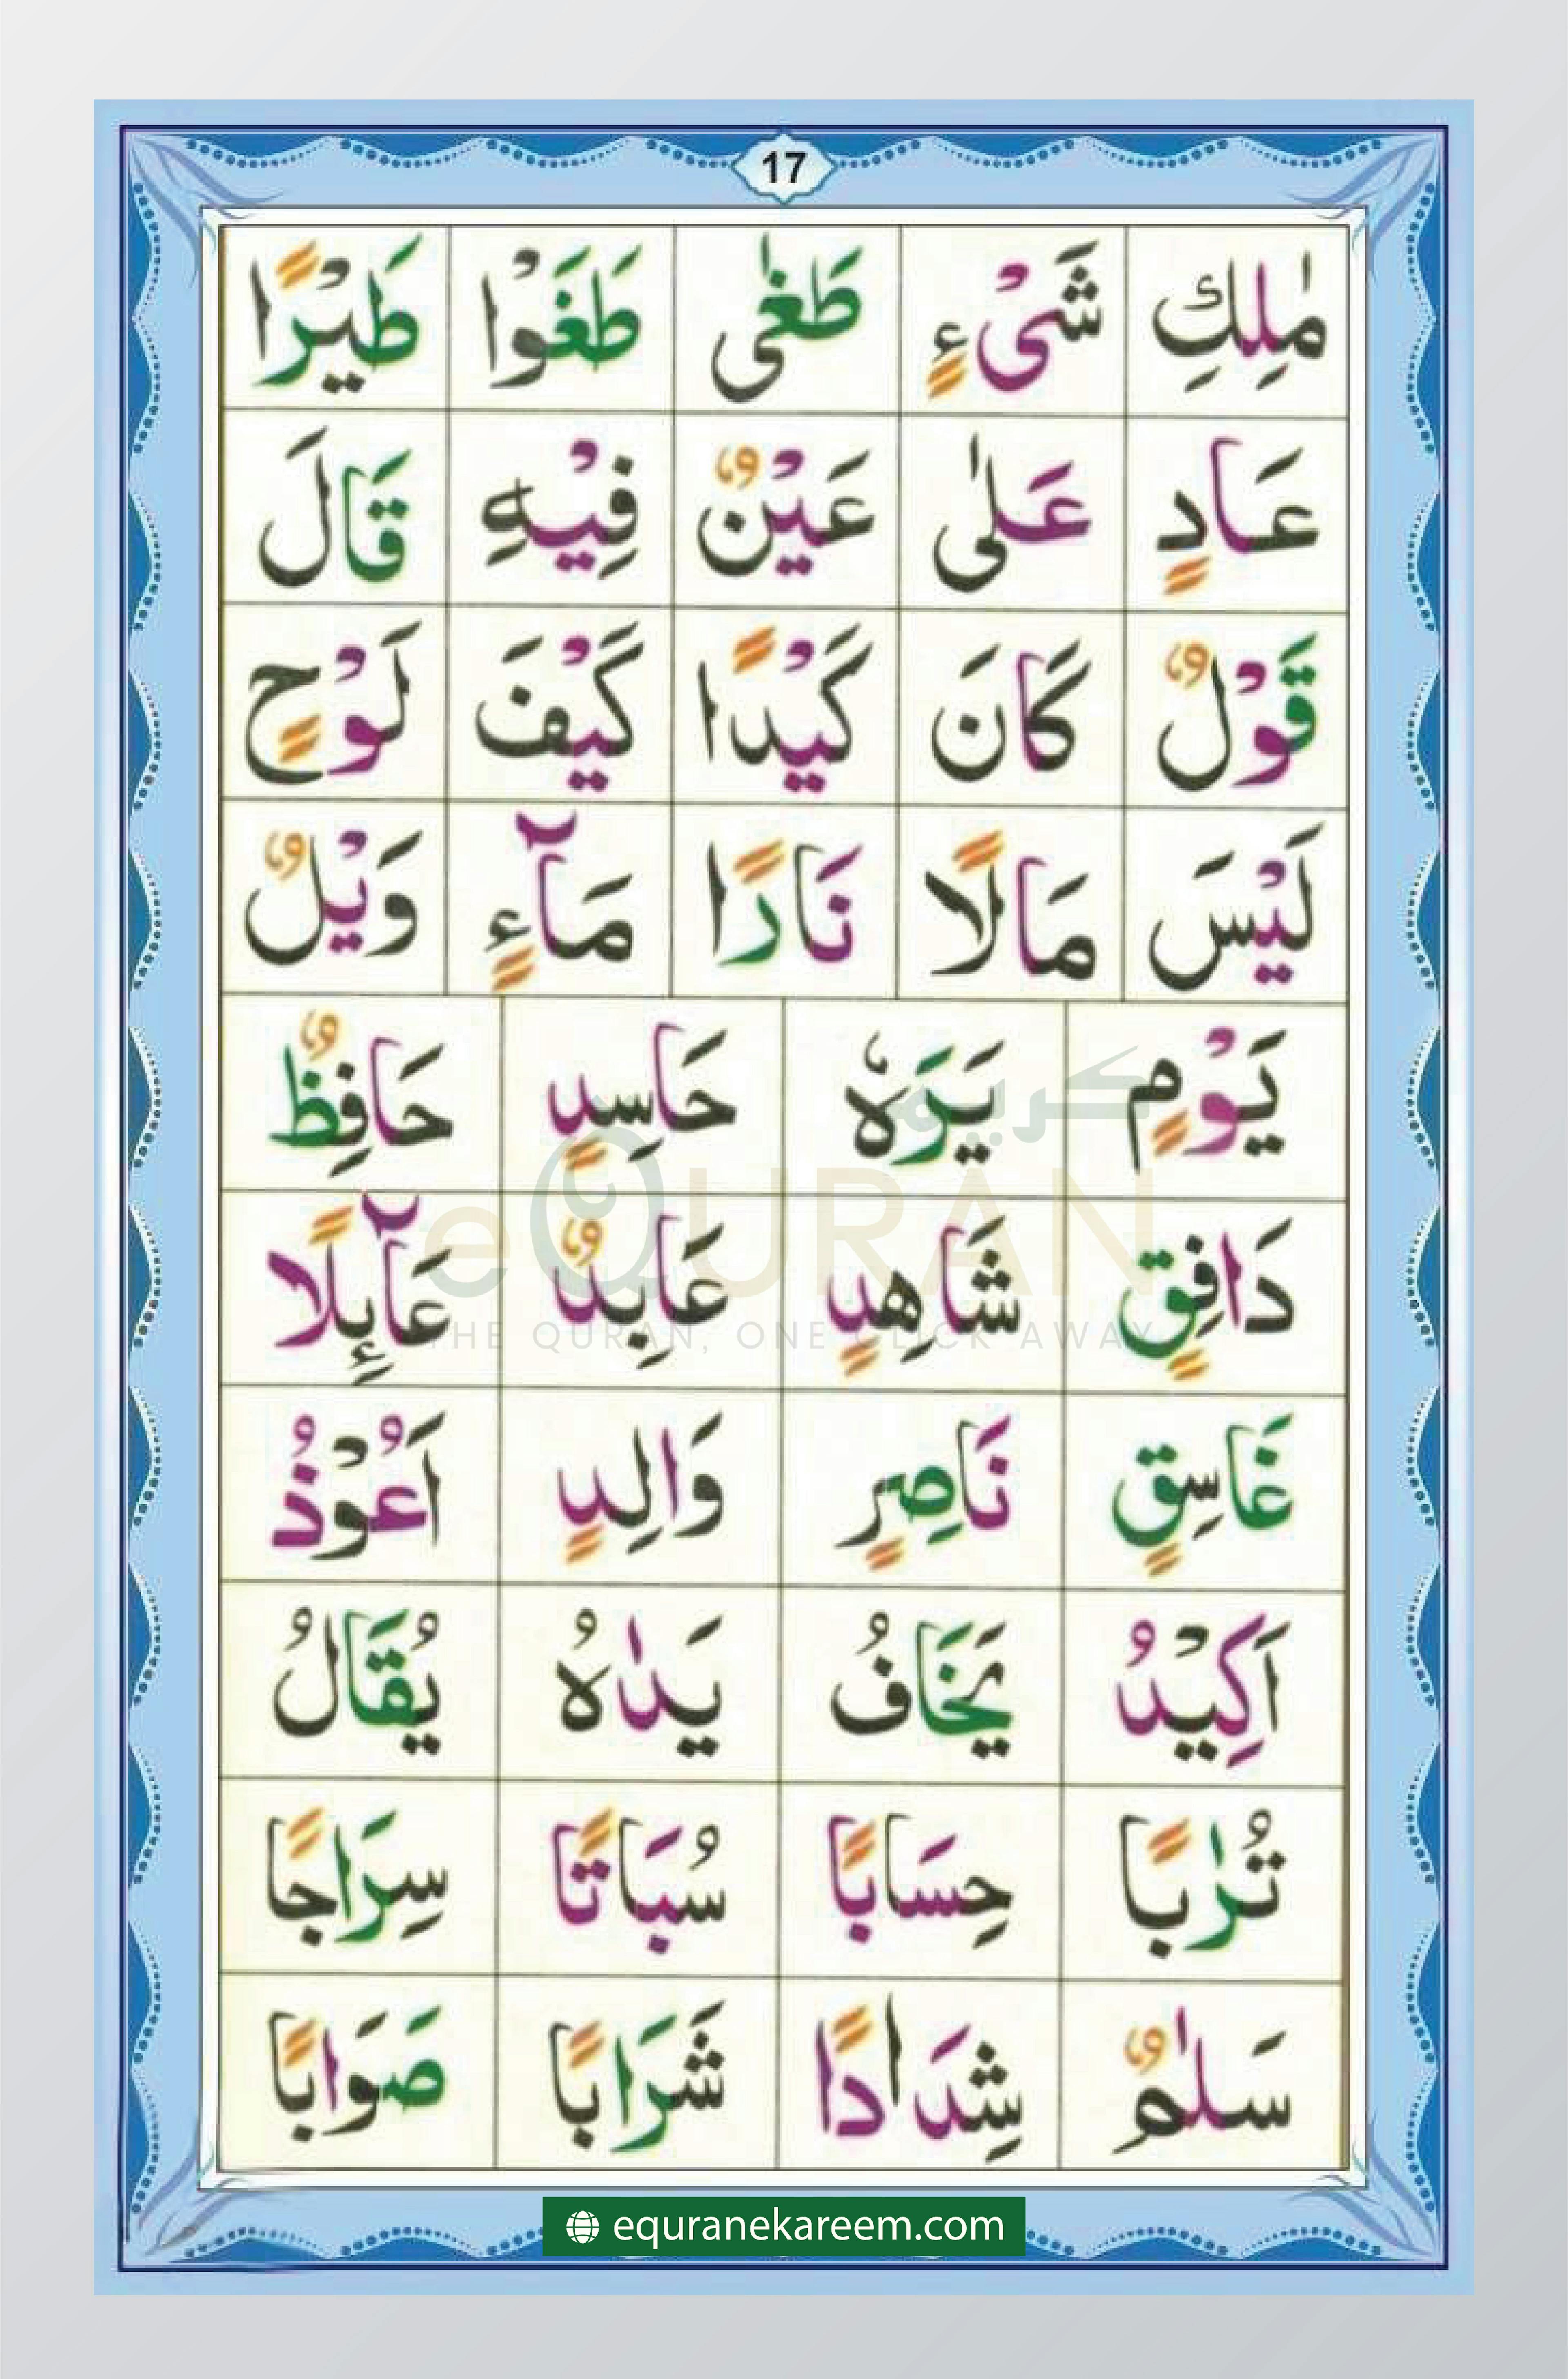 17
مٰلِكِ شَیْءٍ طَغٰی طَغَوْا طَیْرًا
عَادٍ عَلٰی عَیْنٌ فِیْهِ قَالَ
قَوْلٌ كَانَ كَیْدًا كَیْفَ لَوْحٍ
لَیْسَ مَالًا نَارًا مَآءٍ وَیْلٌ
یَوْمٍ یَرَهٗ حَاسِدٍ حَافِظٌ
دَافِقٍ شَاهِدٍ عَابِدٌ عَآىِٕلًا
غَاسِقٍ نَاصِرٍ وَالِدٍ اَعُوْذُ
اَكِیْدُ یَخَافُ یَدٰهُ یُقَالُ
تُرٰبًا حِسَابًا سُبَاتًا سِرَاجًا
سَلٰمٌ شِدَادًا شَرَابًا صَوَابًا
كريم
eQURAN
THE QURAN, ONE CLICK AWAY
equranekareem.com